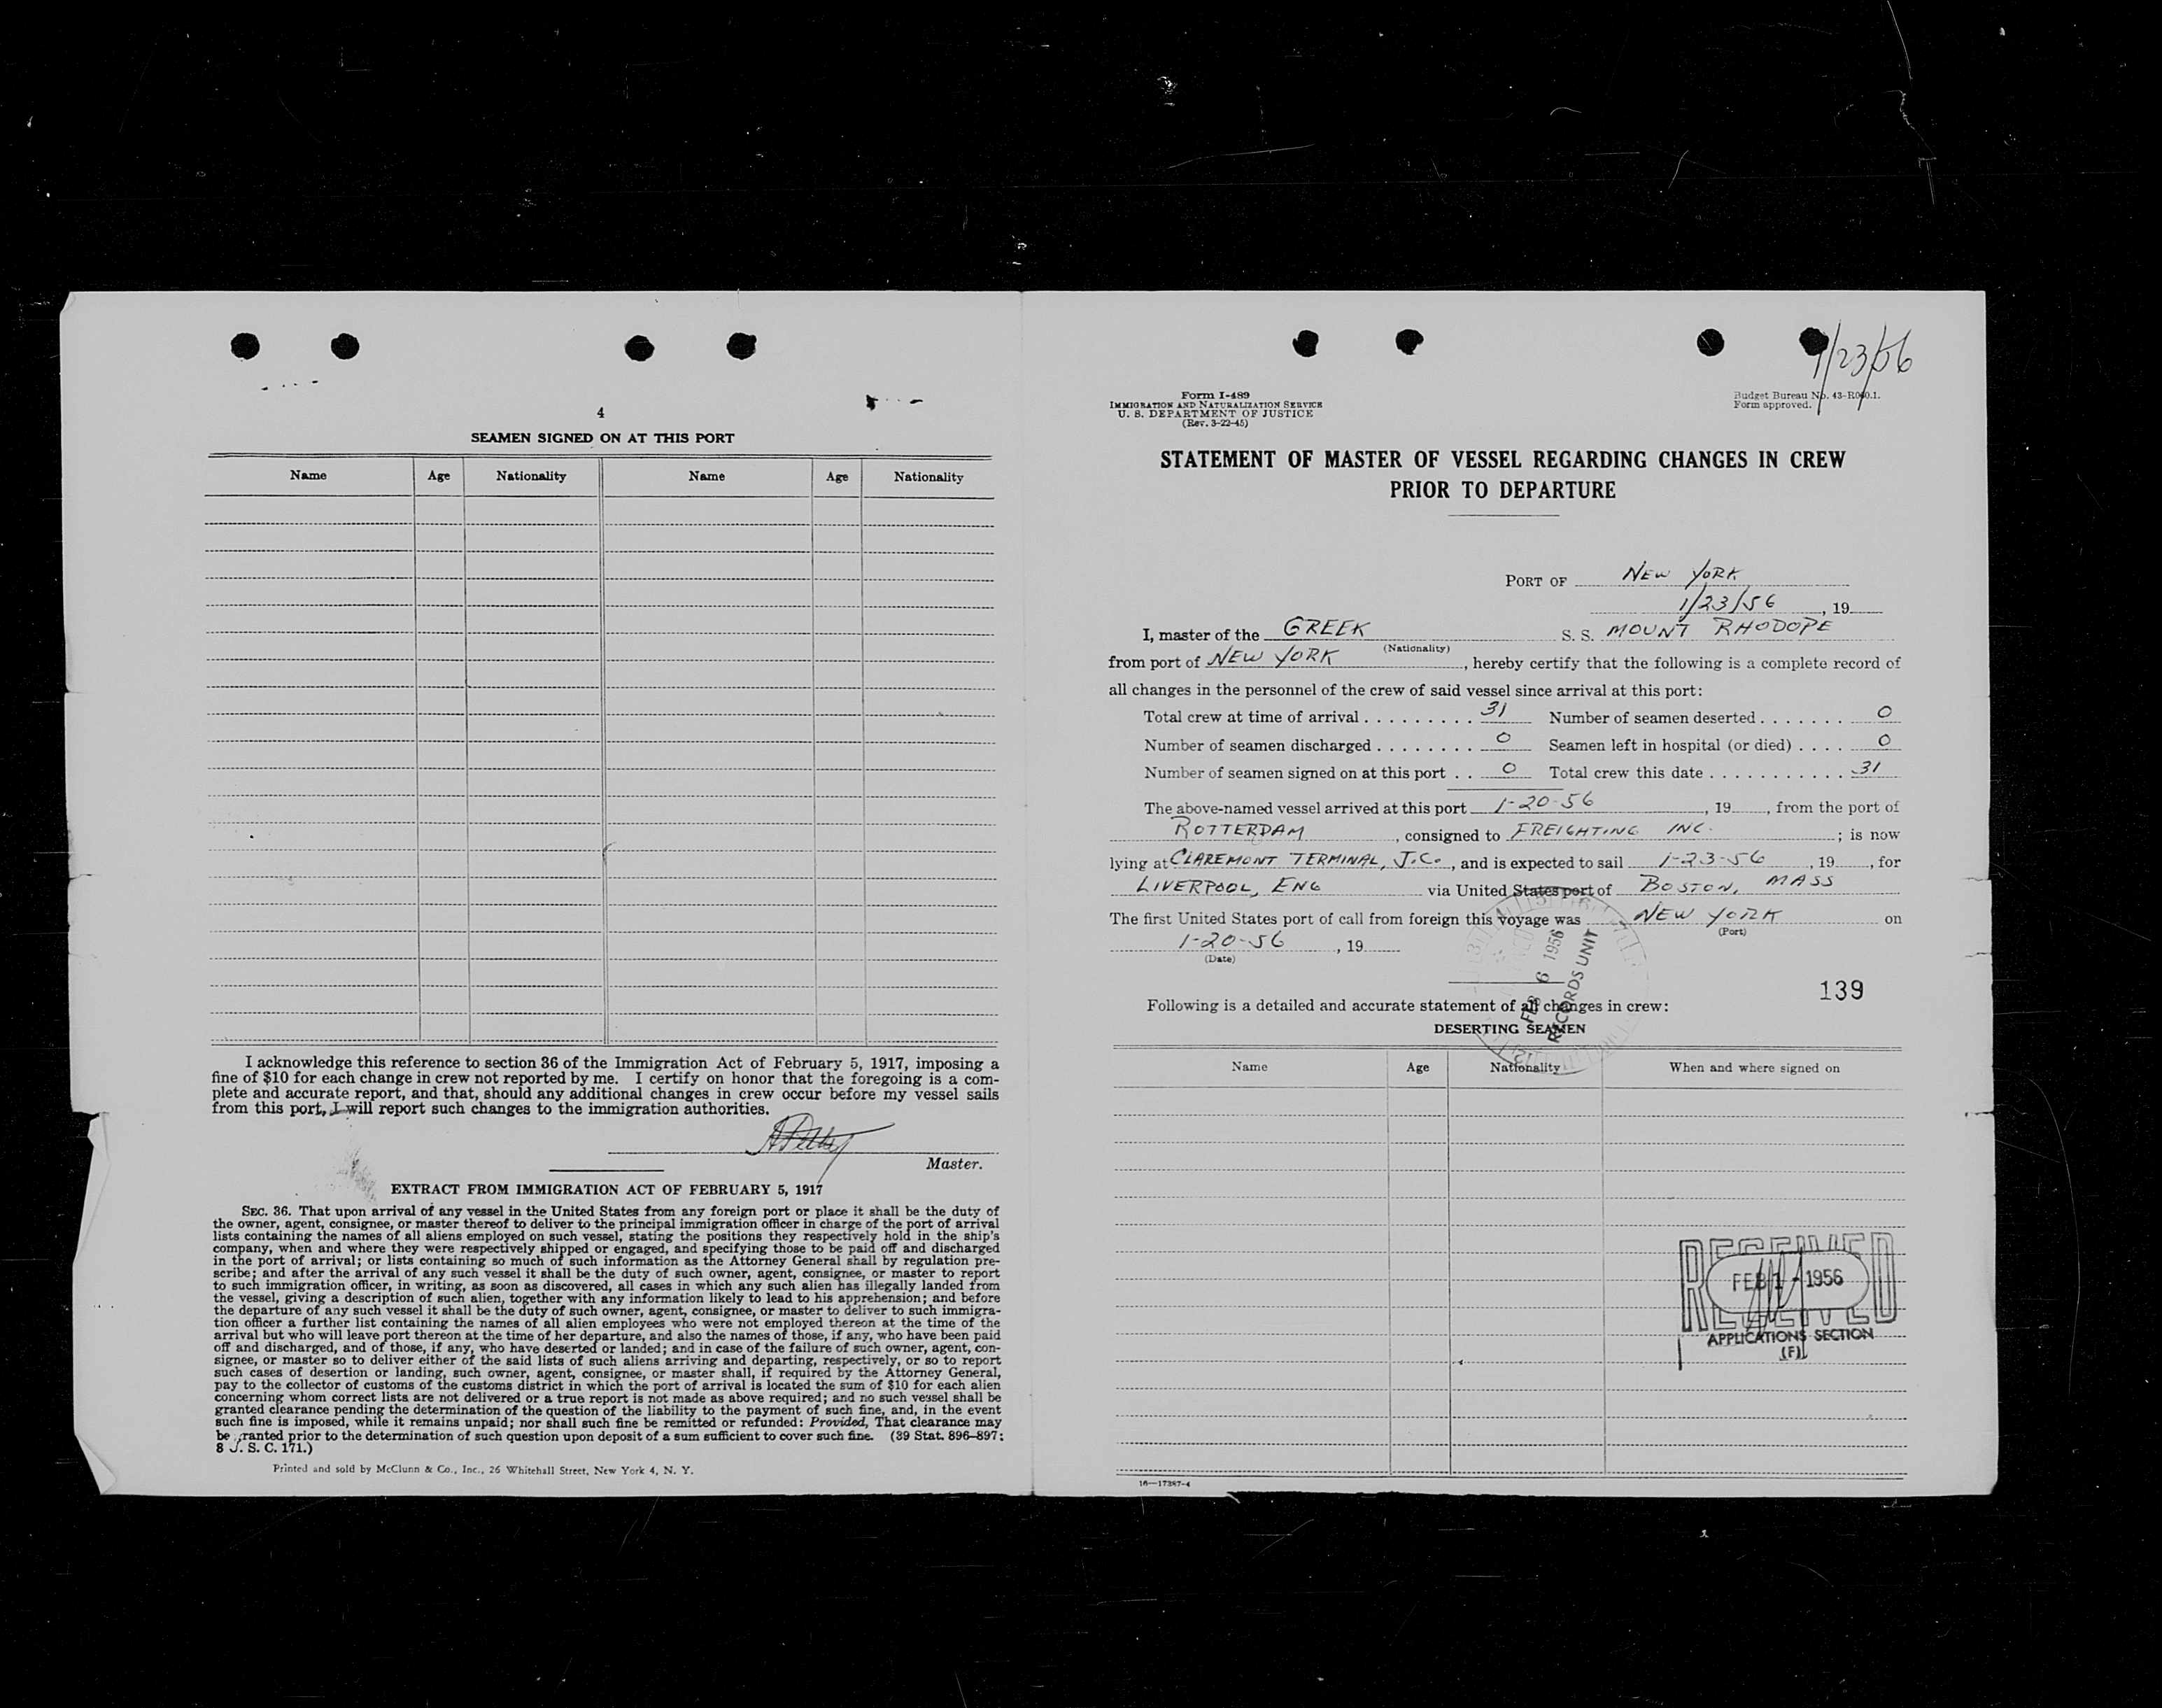 4
SEAMEN SIGNED ON AT THIS PORT
Name Age Nationality Name Age Nationality
I acknowledge this reference to section 36 of the Immigration Act of February 5, 1917, imposing a
fine of $10 for each change in crew not reported by me. I certify on honor that the foregoing is a com-
plete and accurate report, and that, should any additional changes in crew occur before my vessel sails
from this port, I will report such changes to the immigration authorities.
Master.
EXTRACT FROM IMMIGRATION ACT OF FEBRUARY 5, 1917
SEC. 36. That upon arrival of any vessel in the United States from any foreign port or place it shall be the duty of
the owner, agent, consignee, or master thereof to deliver to the principal immigration officer in charge of the port of arrival
lists containing the names of all aliens employed on such vessel, stating the positions they respectively hold in the ship's
company, when and where they were respectively shipped or engaged, and specifying those to be paid off and discharged
in the port of arrival; or lists containing so much of such information as the Attorney General shall by regulation pre-
scribe; and after the arrival of any such vessel it shall be the duty of such owner, agent, consignee, or master to report
to such immigration officer, in writing, as soon as discovered, all cases in which any such alien has illegally landed from
the vessel, giving a description of such alien, together with any information likely to lead to his apprehension; and before
the departure of any such vessel it shall be the duty of such owner, agent, consignee, or master to deliver to such immigra-
tion officer a further list containing the names of all alien employees who were not employed thereon at the time of the
arrival but who will leave port thereon at the time of her departure, and also the names of those, if any, who have been paid
off and discharged, and of those, if any, who have deserted or landed; and in case of the failure of such owner, agent, con-
signee, or master so to deliver either of the said lists of such aliens arriving and departing, respectively, or so to report
such cases of desertion or landing, such owner, agent, consignee, or master shall, if required by the Attorney General,
pay to the collector of customs of the customs district in which the port of arrival is located the sum of $10 for each alien
concerning whom correct lists are not delivered or a true report is not made as above required; and no such vessel shall be
granted clearance pending the determination of the question of the liability to the payment of such fine, and, in the event
such fine is imposed, while it remains unpaid; nor shall such fine be remitted or refunded: Provided, That clearance may
be granted prior to the determination of such question upon deposit of a sum sufficient to cover such fine. (39 Stat. 896–897;
8 U. S. C. 171.)
Printed and sold by McClunn & Co., Inc., 26 Whitehall Street, New York 4, N. Y.
1/23/56
Form I-489
IMMIGRATION AND NATURALIZATION SERVICE
U. S. DEPARTMENT OF JUSTICE
(Rev. 3-22-45)
Budget Bureau No. 43-R040.1.
Form approved.
STATEMENT OF MASTER OF VESSEL REGARDING CHANGES IN CREW
PRIOR TO DEPARTURE
PORT OF NEW YORK
1/23/56, 19
I, master of the GREEK S. S. MOUNT RHODOPE
(Nationality)
from port of NEW YORK, hereby certify that the following is a complete record of
all changes in the personnel of the crew of said vessel since arrival at this port:
Total crew at time of arrival 31 Number of seamen deserted 0
Number of seamen discharged 0 Seamen left in hospital (or died) 0
Number of seamen signed on at this port 0 Total crew this date 31
The above-named vessel arrived at this port 1-20-56, 19, from the port of
ROTTERDAM, consigned to FREIGHTING INC.; is now
lying at CLAREMONT TERMINAL, J.C., and is expected to sail 1-23-56, 19, for
LIVERPOOL, ENG via United States port of BOSTON, MASS
The first United States port of call from foreign this voyage was NEW YORK on
(Port)
1-20-56, 19
(Date)
FEB 6 1956
RECORDS UNIT
139
Following is a detailed and accurate statement of all changes in crew:
DESERTING SEAMEN
Name Age Nationality When and where signed on
RECEIVED
FEB 1 - 1956
RECEIVED
APPLICATIONS SECTION
(F)
16—17387-4